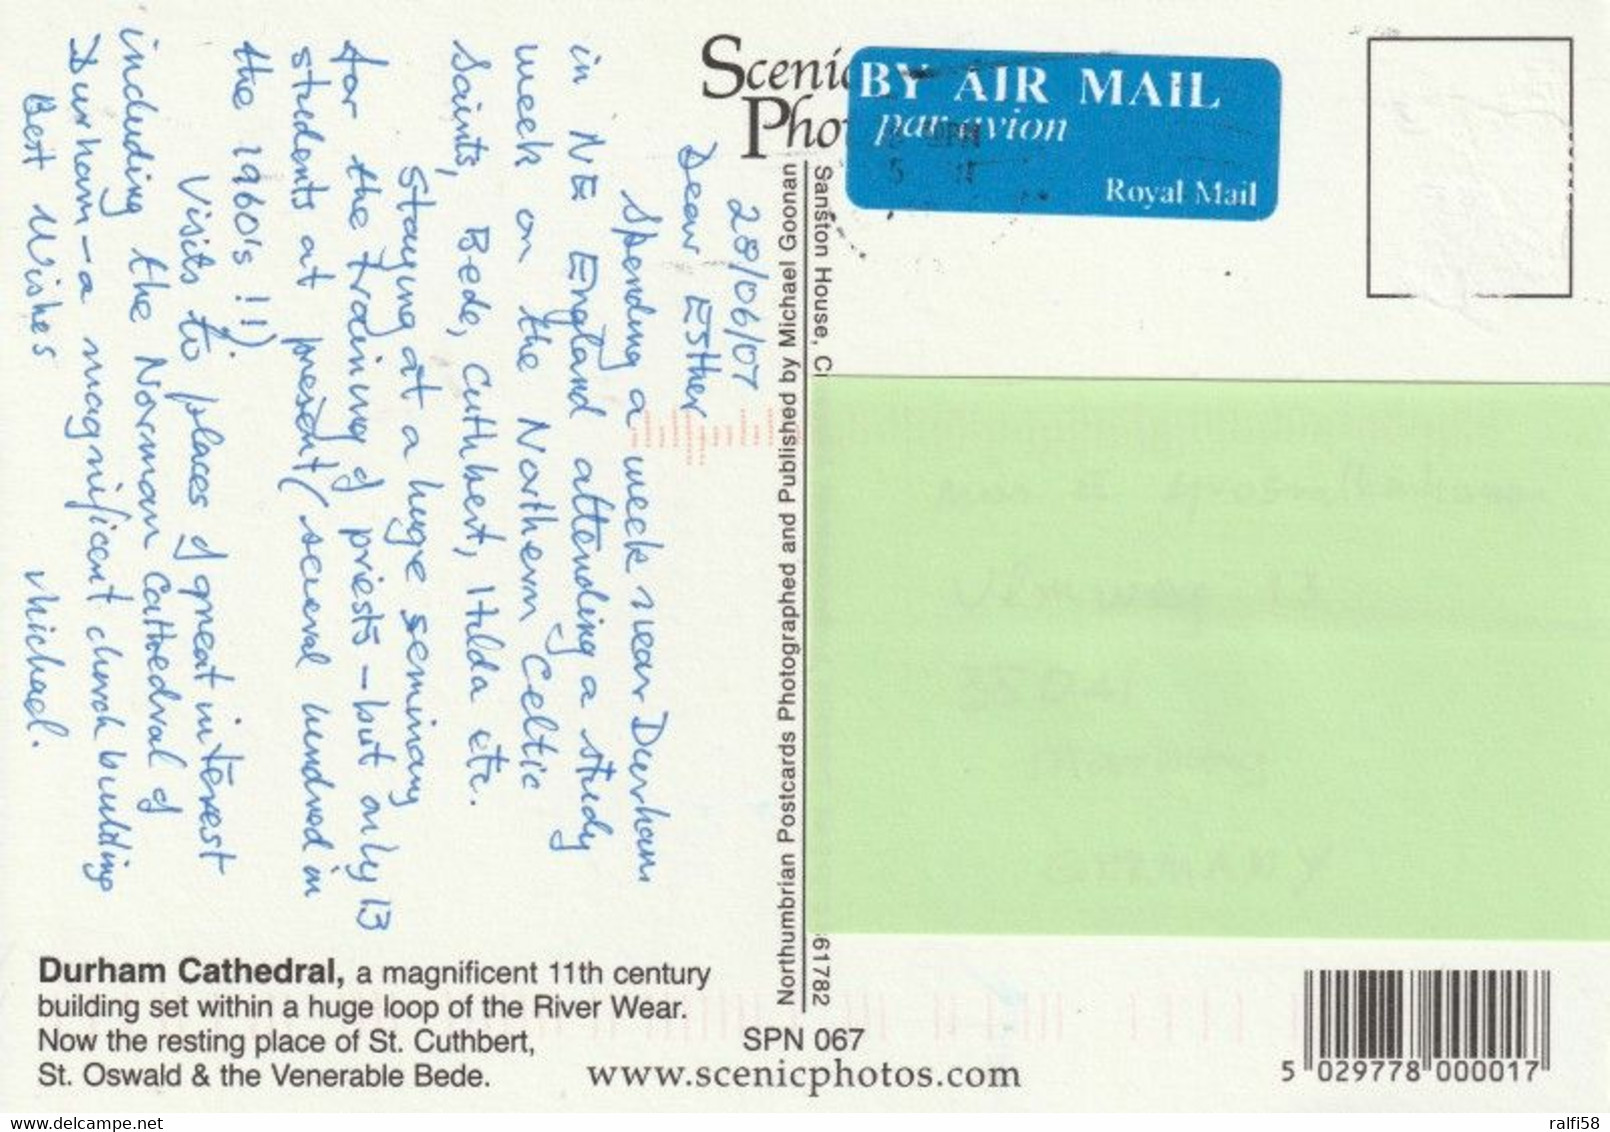 Scenic
Photo
BY AIR MAIL
par avion
Royal Mail
28/06/07
Dear Esther
Spending a week near Durham
in NE England attending a study
week on the Northern Celtic
Saints, Bede, Cuthbert, Hilda etc.
Staying at a huge seminary
for the training of priests – but only 13
students at present (several hundred in
the 1960's !!)
Visits to places of great interest
including the Norman Cathedral of
Durham – a magnificent church building
Best Wishes
Michael.
Northumbrian Postcards Photographed and Published by Michael Goonan
Sanston House,
61782
Durham Cathedral, a magnificent 11th century
building set within a huge loop of the River Wear.
Now the resting place of St. Cuthbert,
St. Oswald & the Venerable Bede.
SPN 067
www.scenicphotos.com
5 029778 000017
delcampe.net
ralfi58